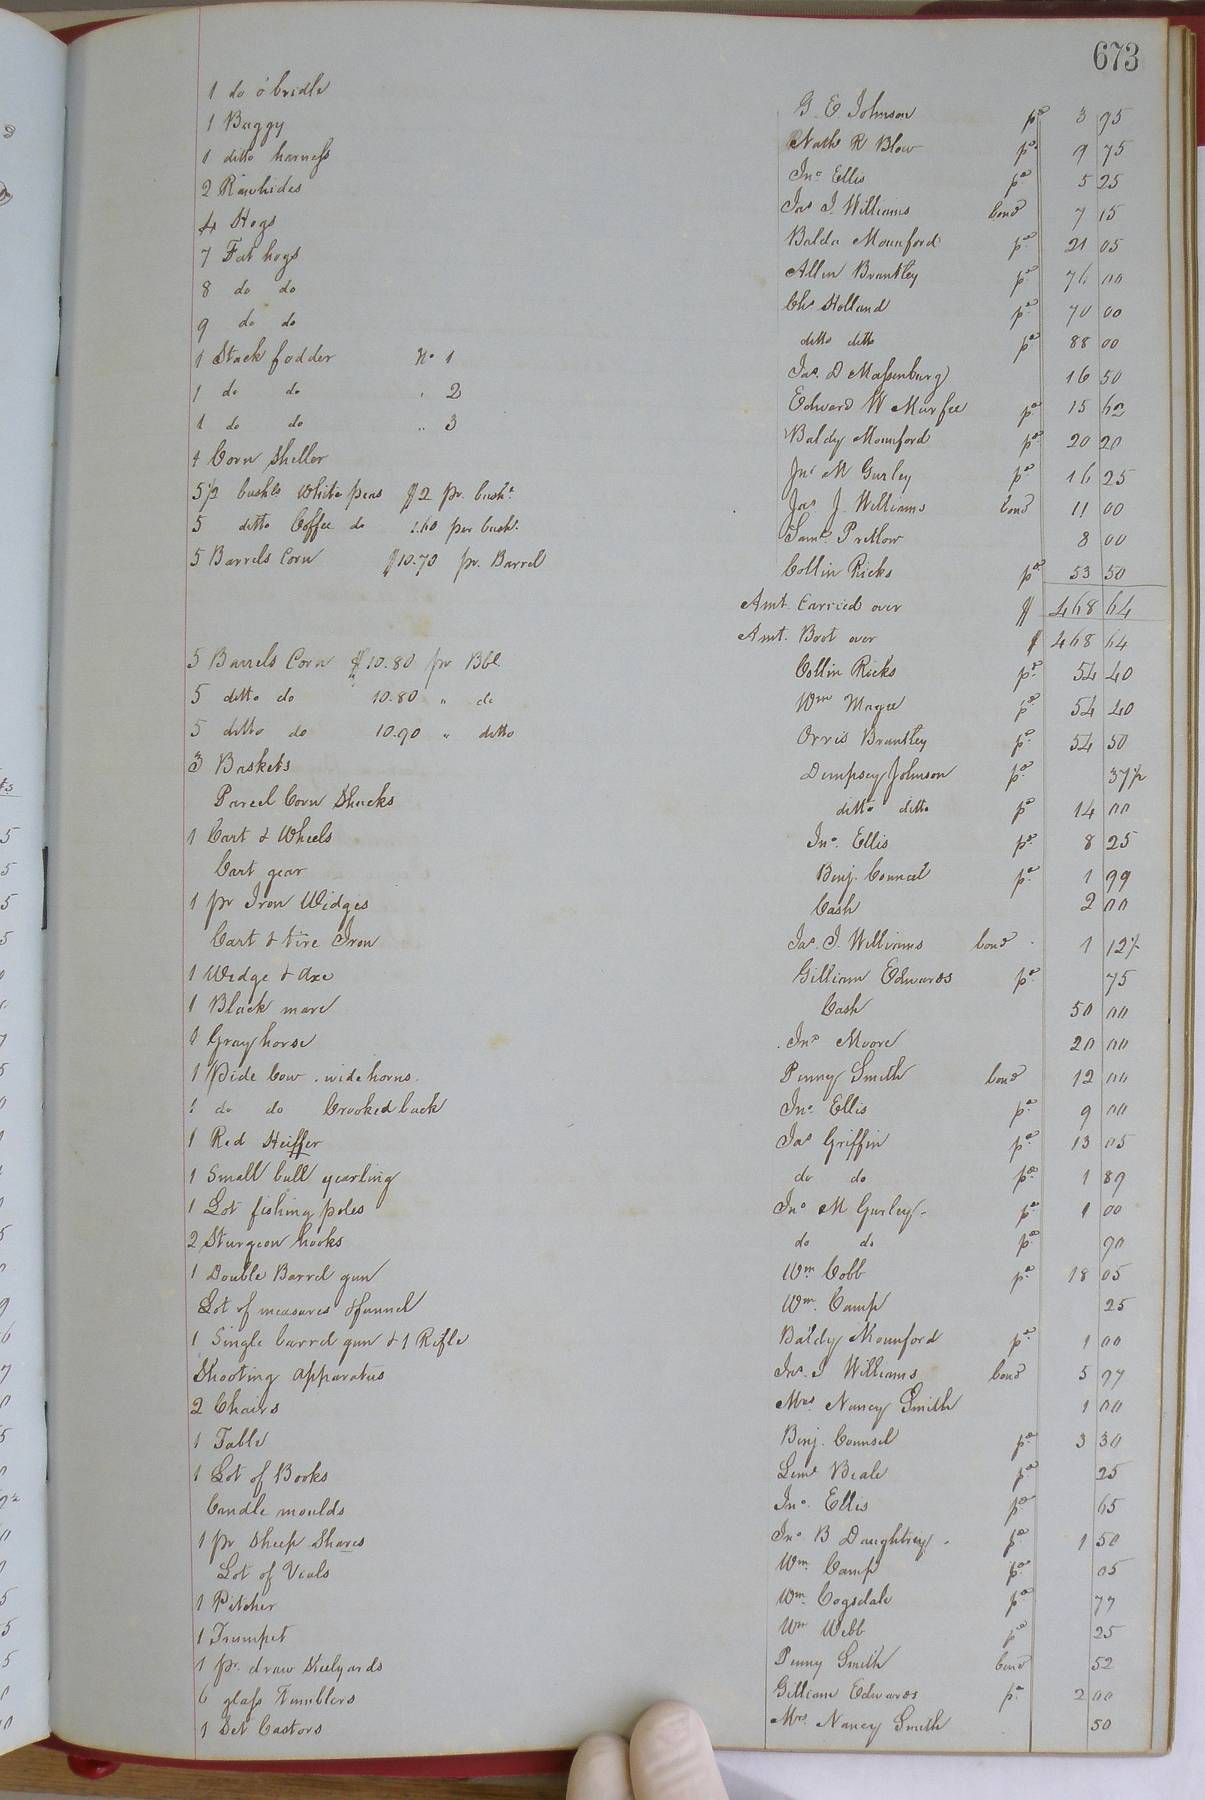 673
1 do & bridle G. E. Johnson pd 3 95
1 Buggy Nathl R Blow pd 9 75
1 ditto harness Jno Ellis pd 5 25
2 Rawhides Jas J. Williams bond 7 15
4 Hogs Balda Mounford pd 21 05
7 Fat hogs Allen Brantley pd 76 00
8 do do Chs Holland pd 70 00
9 do do ditto ditto pd 88 00
1 Stack fodder No 1 Jas. D Massenburg 16 50
1 do do " 2 Edward W Murfee pd 15 62
1 do do " 3 Baldy Mounford pd 20 20
1 Corn Sheller Jno M Gurley pd 16 25
5 1/2 bushls White peas $2 pr. bushl Jas J. Williams bond 11 00
5 ditto Coffee do 1.60 per bushl Saml Pretlow 8 00
5 Barrels Corn $10.70 pr. Barrel Collin Ricks pd 53 50
Amt. Carried over $ 468 64
Amt. Brot over $ 468 64
5 Barrels Corn $10.80 pr Bbl Collin Ricks pd 54 40
5 ditto do 10.80 " do Wm Magee pd 54 40
5 ditto do 10.90 " ditto Orris Brantley pd 54 50
3 Baskets Dempsey Johnson pd 37 1/2
Parcel Corn Shucks ditto ditto pd 14 00
1 Cart & Wheels Jno. Ellis pd 8 25
Cart gear Benj. Council pd 1 99
1 pr Iron Widges Cash 2 00
Cart & tire Iron Jas. J. Williams bond 1 12 1/2
1 Wedge & Axe Gilliam Edwards pd 75
1 Black mare Cash 50 00
1 Gray horse Jno Moore 20 00
1 Pide Cow . wide horns. Penny Smith bond 12 00
1 do do Crooked back Jno. Ellis pd 9 00
1 Red Heiffer Jas Griffin pd 13 05
1 Small bull yearling do do pd 1 89
1 Lot fishing poles Jno M Gurley pd 1 00
2 Sturgeon hooks do do pd 90
1 Double Barrel gun Wm Cobb pd 18 05
Lot of measures & funnel Wm. Camp 25
1 Single barrel gun & 1 Rifle Baldy Mounford pd 1 00
Shooting apparatus Jas. J Williams bond 5 97
2 Chairs Mrs Nancy Smith 1 00
1 Table Benj. Counsel pd 3 30
1 Lot of Books Leml Beale pd 25
Candle moulds Jno. Ellis pd 65
1 pr Sheep Shares Jno B Daughtrey pd 1 50
Lot of Vials Wm. Camp pd 05
1 Pitcher Wm. Cogsdale pd 77
1 Trumpet Wm Webb pd 25
1 pr. draw Steelyards Penny Smith bond 52
6 glass Tumblers Gilliam Edwards pd 2 00
1 Set Castors Mrs Nancy Smith 50